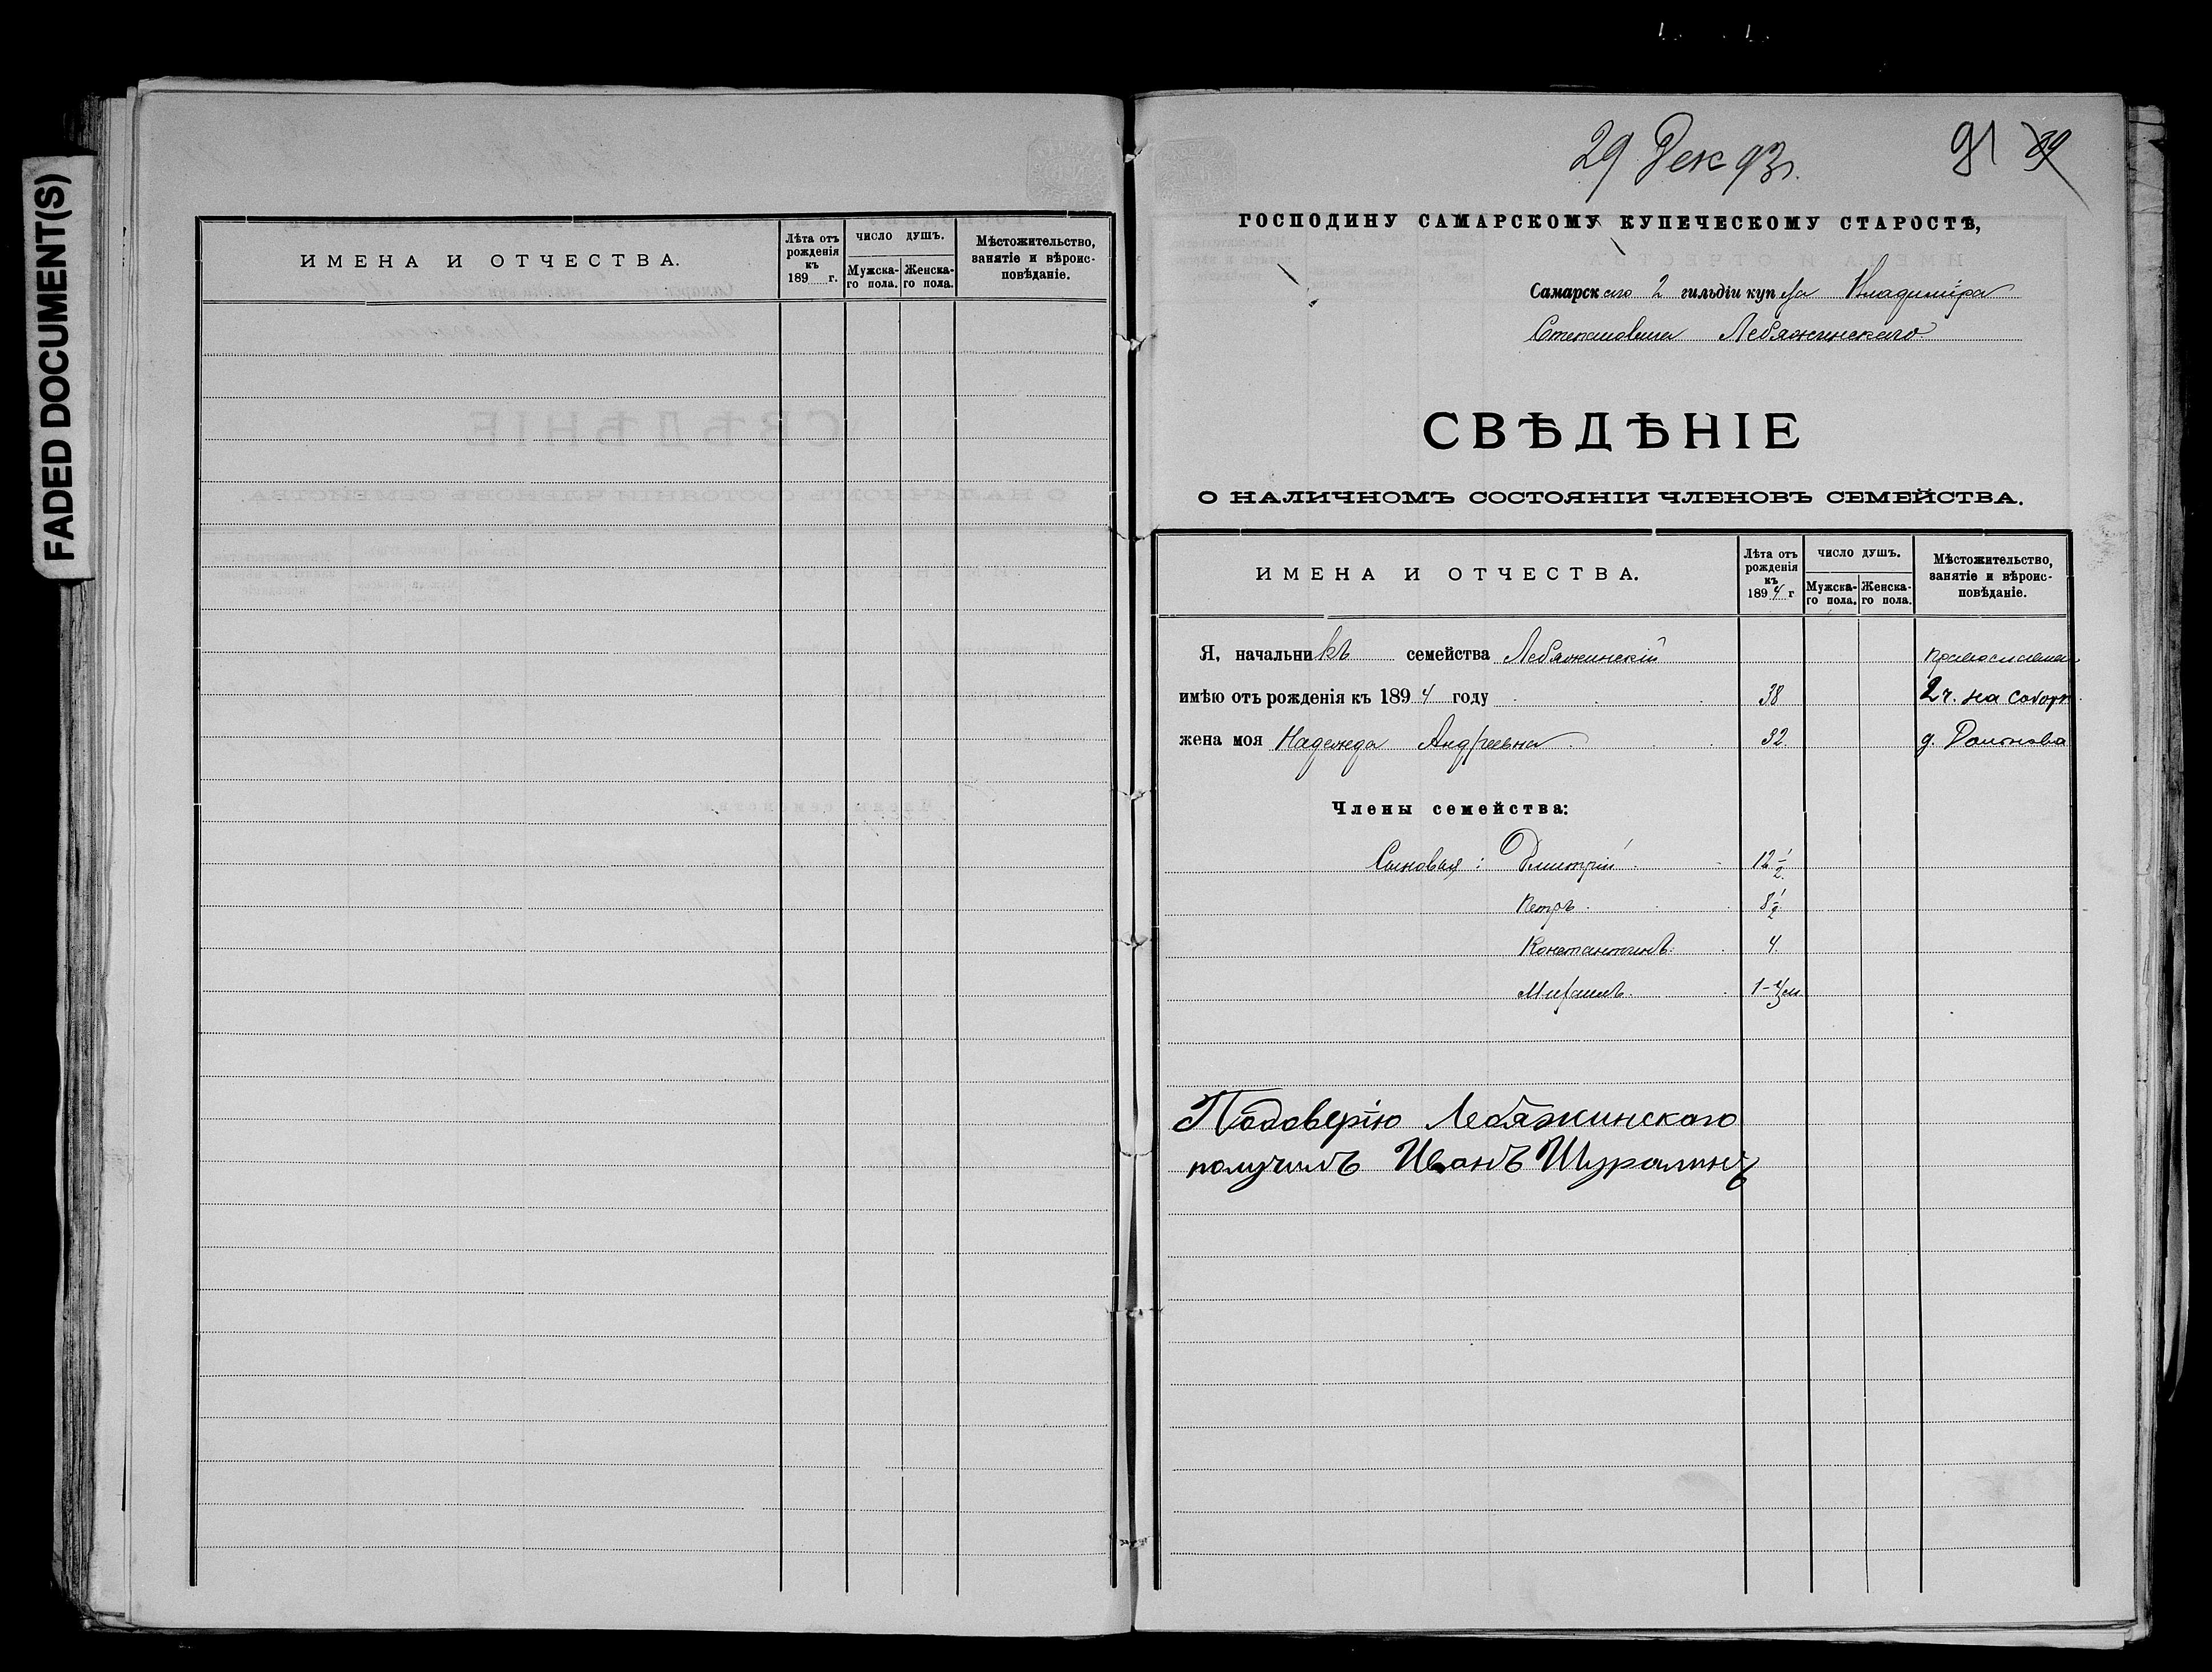 FADED DOCUMENT(S)
ИМЕНА И ОТЧЕСТВА.
Лѣта отъ рожденія къ 189 г.
ЧИСЛО ДУШЪ.
Мужска-го пола.
Женска-го пола.
Мѣстожительство, занятіе и вѣроис-повѣданіе.
29 Дек 93 г.
91 39
ГОСПОДИНУ САМАРСКОМУ КУПЕЧЕСКОМУ СТАРОСТѢ,
Самарскаго 2 гильдіи купца Владиміра
Степановича Лебяжинскаго
СВѢДѢНІЕ
О НАЛИЧНОМЪ СОСТОЯНІИ ЧЛЕНОВЪ СЕМЕЙСТВА.
ИМЕНА И ОТЧЕСТВА.
Лѣта отъ рожденія къ 1894 г
ЧИСЛО ДУШЪ.
Мужска-го пола.
Женска-го пола.
Мѣстожительство, занятіе и вѣроис-повѣданіе.
Я, начальникъ семейства Лебяжинскій
имѣю отъ рожденія къ 1894 году 38 2 ч. на
жена моя Надежда Андреевна 32. д.
Члены семейства:
Сыновья: Дмитрій 12 1/2
Петръ 8 1/2
Константинъ. 4.
Михаилъ. 1
Подоверію Лебяжинскаго
получилъ Иванъ Шуралинъ